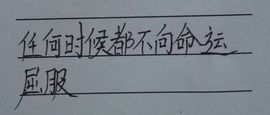 任何时候都不向命运
屈服